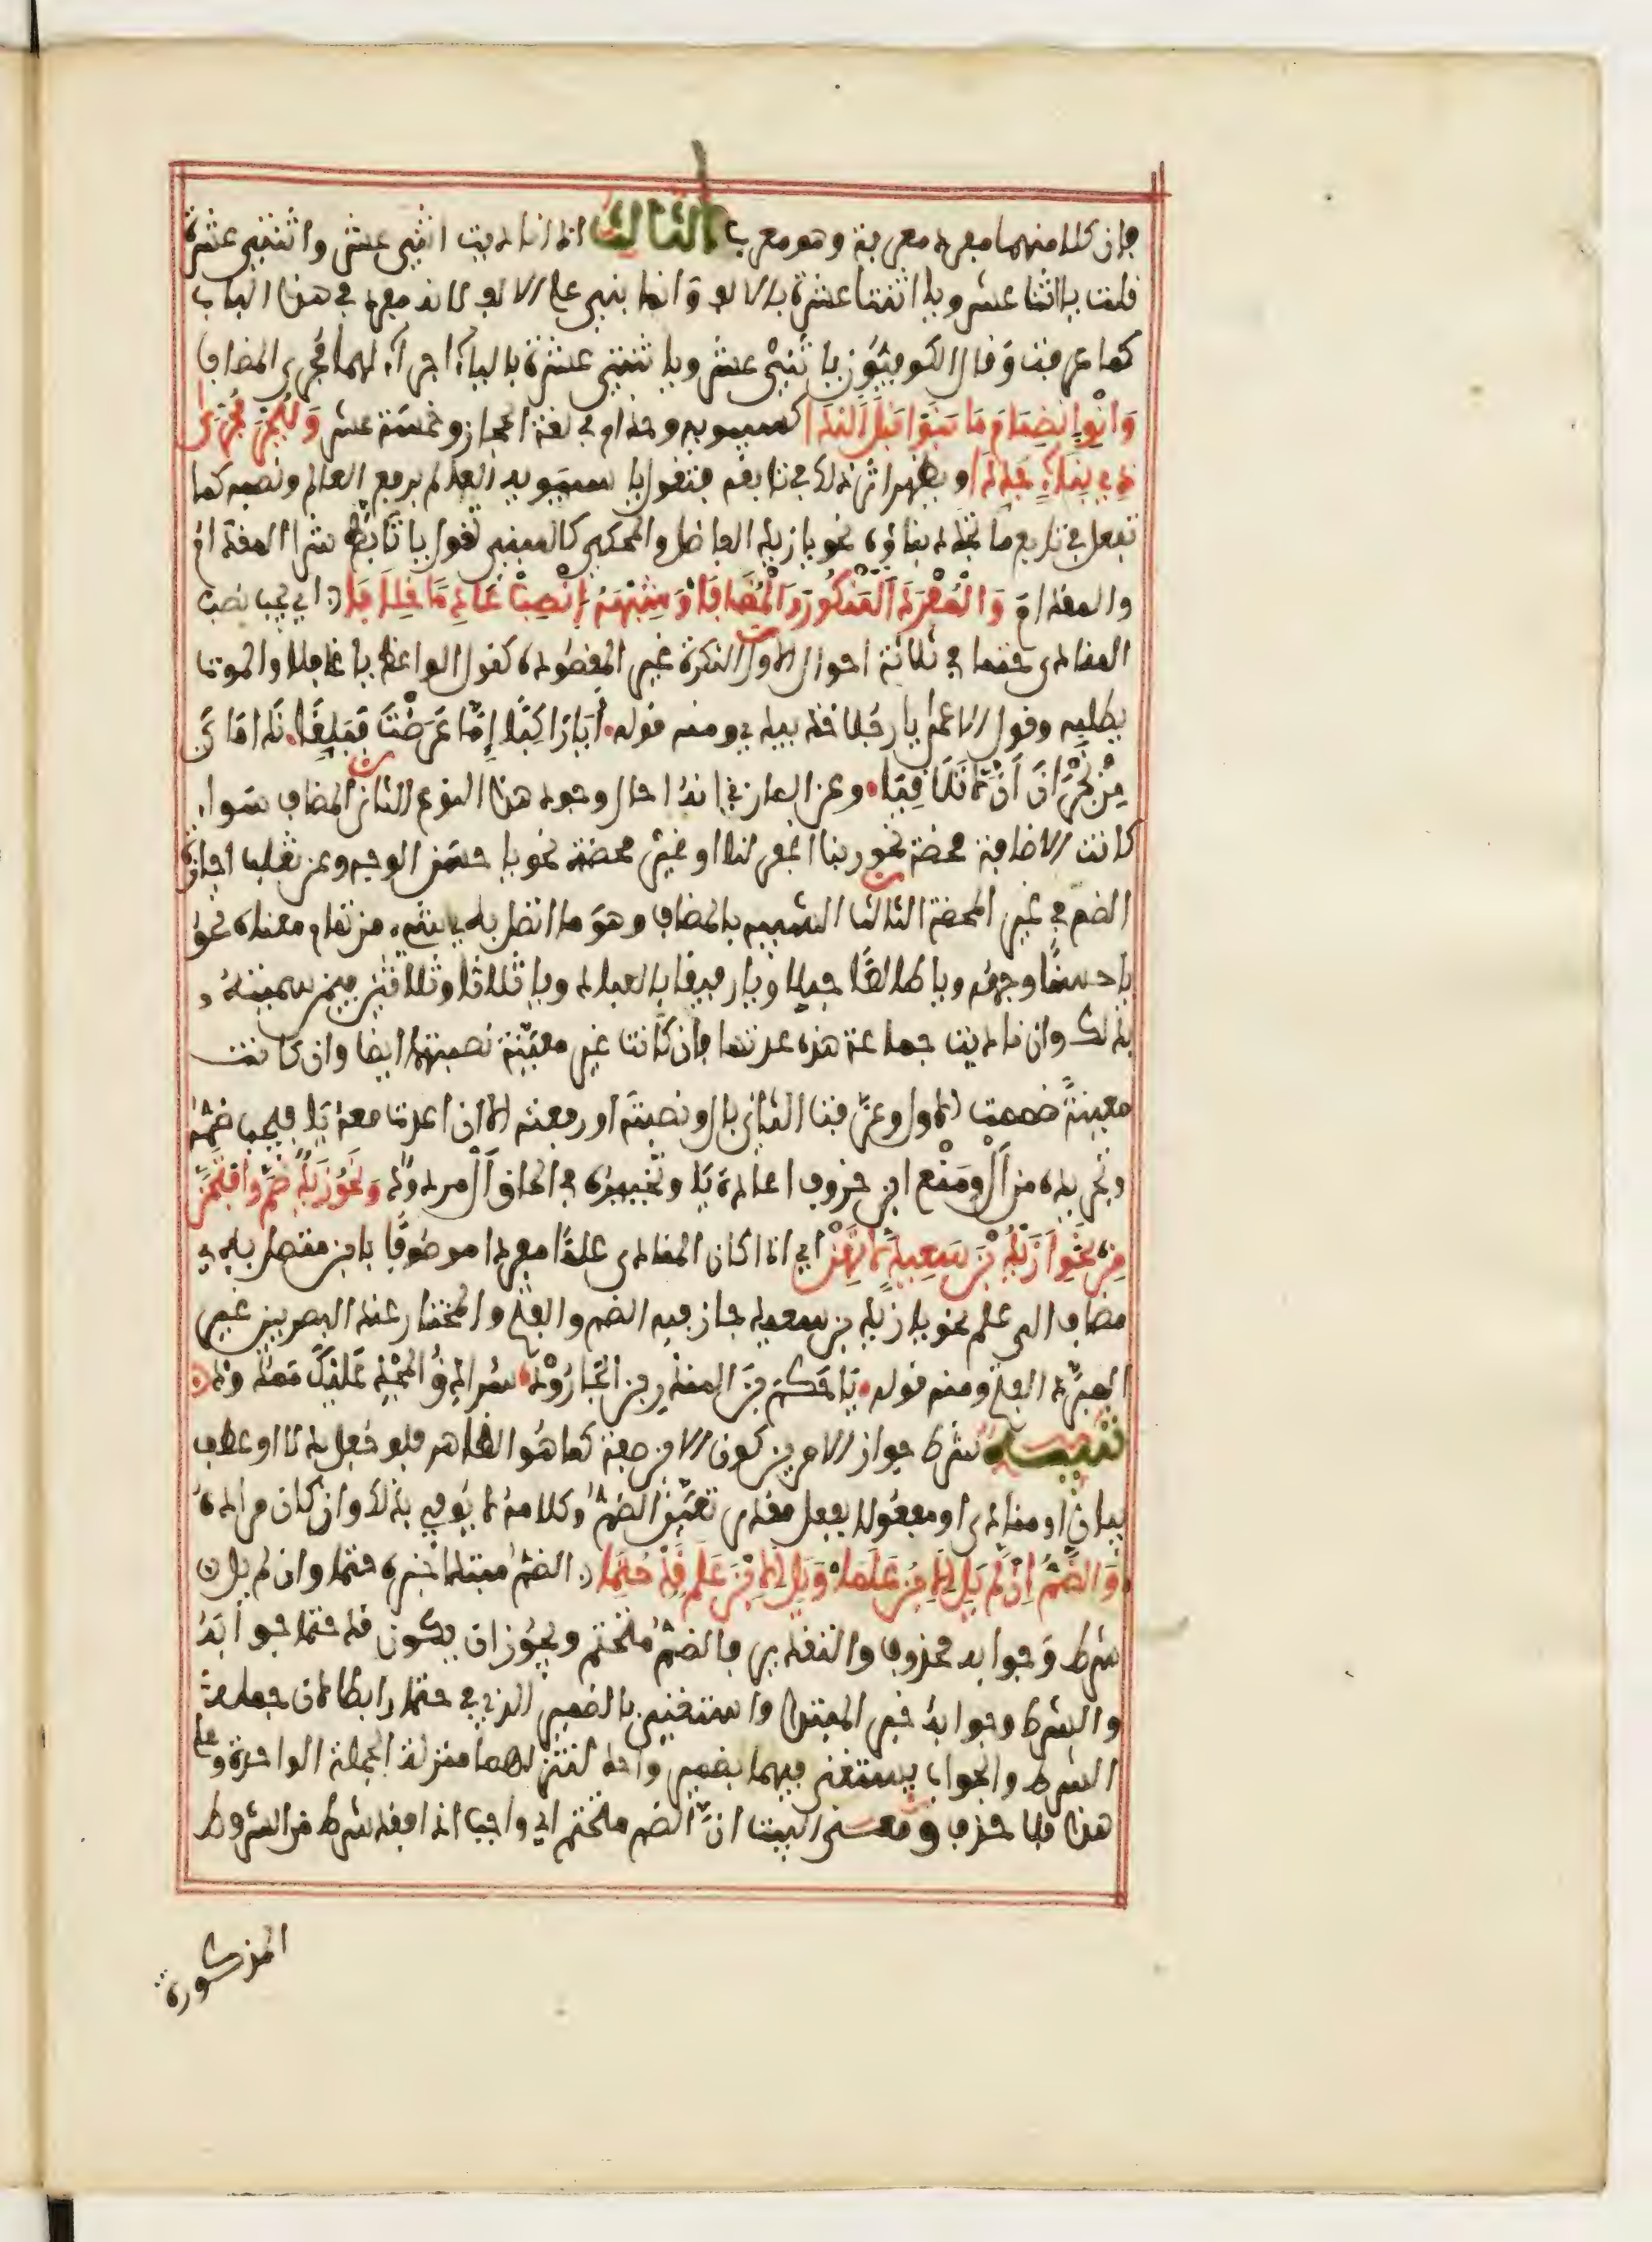 فان كلا منهما مفرد معرفة وهو معرب الثالث اذا ناديت اثنى عشر واثنتى عشرة
قلت يا اثنا عشر ويا اثنتا عشرة بالالف وانما بنى على الالف لانه مفرد في هذا الباب
كما عرفت وقال الكوفيون يا ثنى عشر ويا ثنتى عشرة بالياء اجراء لهما مجرى المضاف
وَانْوِ انضمام ما بنوا قبل النِّدا كسيبويه وحذام في لغة الحجاز وخمسة عشر وَلْيُجْرَ مُجرى
ذي بناء جددا ويظهر اثر ذلك في تابعه فتقول يا سيبويه العالم برفع العالم ونصبه كما
تفعل في تابع ما تجدد بناؤه نحو يا زيد الفاضل والمحكي كالمبني تقول يا تأبط شرا المقدامُ
والمقدامَ وَالْمُفْرَدَ الْمَنْكُورَ وَالْمُضَافَا وَشِبْهَهُ انْصِبْ عَادِمًا خِلَافَا اي يجب نصب
المنادى حتما في ثلاثة احوال الاول النكرة غير المقصودة كقول الواعظ يا غافلا والموت
يطلبه وقول الاعمى يا رجلا خذ بيدي ومنه قوله أيا راكبًا إمّا عرضتَ فبلغًا نداماي
من نجران أن لا تلاقيا وعن المازني انه احال وجود هذا النوع الثاني المضاف سواء
كانت الاضافة محضة نحو ربنا اغفر لنا او غير محضة نحو يا حسن الوجه وعن ثعلب اجازة
الضم في غير المحضة الثالث الشبيه بالمضاف وهو ما اتصل به شيء من تمام معناه نحو
يا حسنًا وجهه ويا طالعًا جبلا ويا رفيقا بالعباد ويا ثلاثا وثلاثين فيمن سميته
بذلك وان ناديت جماعة هذه عدتها فان كانت غير معينة نصبتهما ايضا وان كانت
معينةً ضممت الاول وعرفت الثاني بال ونصبته او رفعته الا ان اعدت معه يا فيجب ضمه
وتجريده من ال ومنع ابن خروف اعادة يا وتخييره في الحاق ال مردود وَنَحْوَ زَيْدٍ ضُمَّ وَافْتَحَنَّ
مِنْ نَحْوِ أَزَيْدُ بْنَ سَعِيدٍ لَا تَهِنْ اي اذا كان المنادى علمًا مفردا موصوفًا بابن متصل به
مضاف الى علم نحو يا زيد بن سعيد جاز فيه الضم والفتح والمختار عند البصريين غير
المبرد الفتح ومنه قوله يا حكم بن المنذر بن الجارود سرادق المجد عليك ممدود
تنبيه شرط جواز الامرين كون الابن صفة كما هو الظاهر فلو جعل بدلا او عطف
بيان او منادى او مفعولا بفعل مقدر تعين الضم وكلامه لا يوفي بذلك وان كان مراده
وَالضَّمُّ إِنْ لَمْ يَلِ الِابْنُ عَلَمَا وَيَلِ الِابْنَ عَلَمٌ قَدْ حُتِمَا الضم مبتدا خبره حتما وان لم يل
شرط وجوابه محذوف والتقدير فالضم متحتم ويجوز ان يكون قد حتما جوابه
والشرط وجوابه خبر المبتدا واستغنى بالضمير الذي في حتما رابطا لان جملة
الشرط والجواب يستغنى فيهما بضمير واحد لتنزلهما منزلة الجملة الواحدة وعلى
هذا فلا حذف ومعنى البيت انّ الضم متحتم اي واجب اذا فقد شرط من الشروط
المذكورة